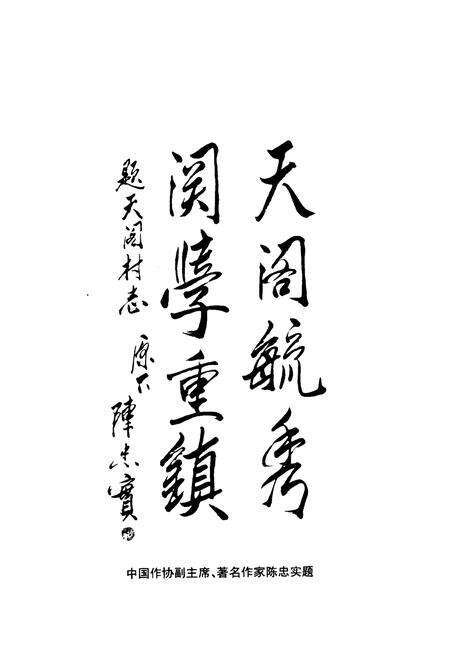 天阁毓秀
関學重鎮
题天阁村志 原下 陳忠實
中国作协副主席、著名作家陈忠实题